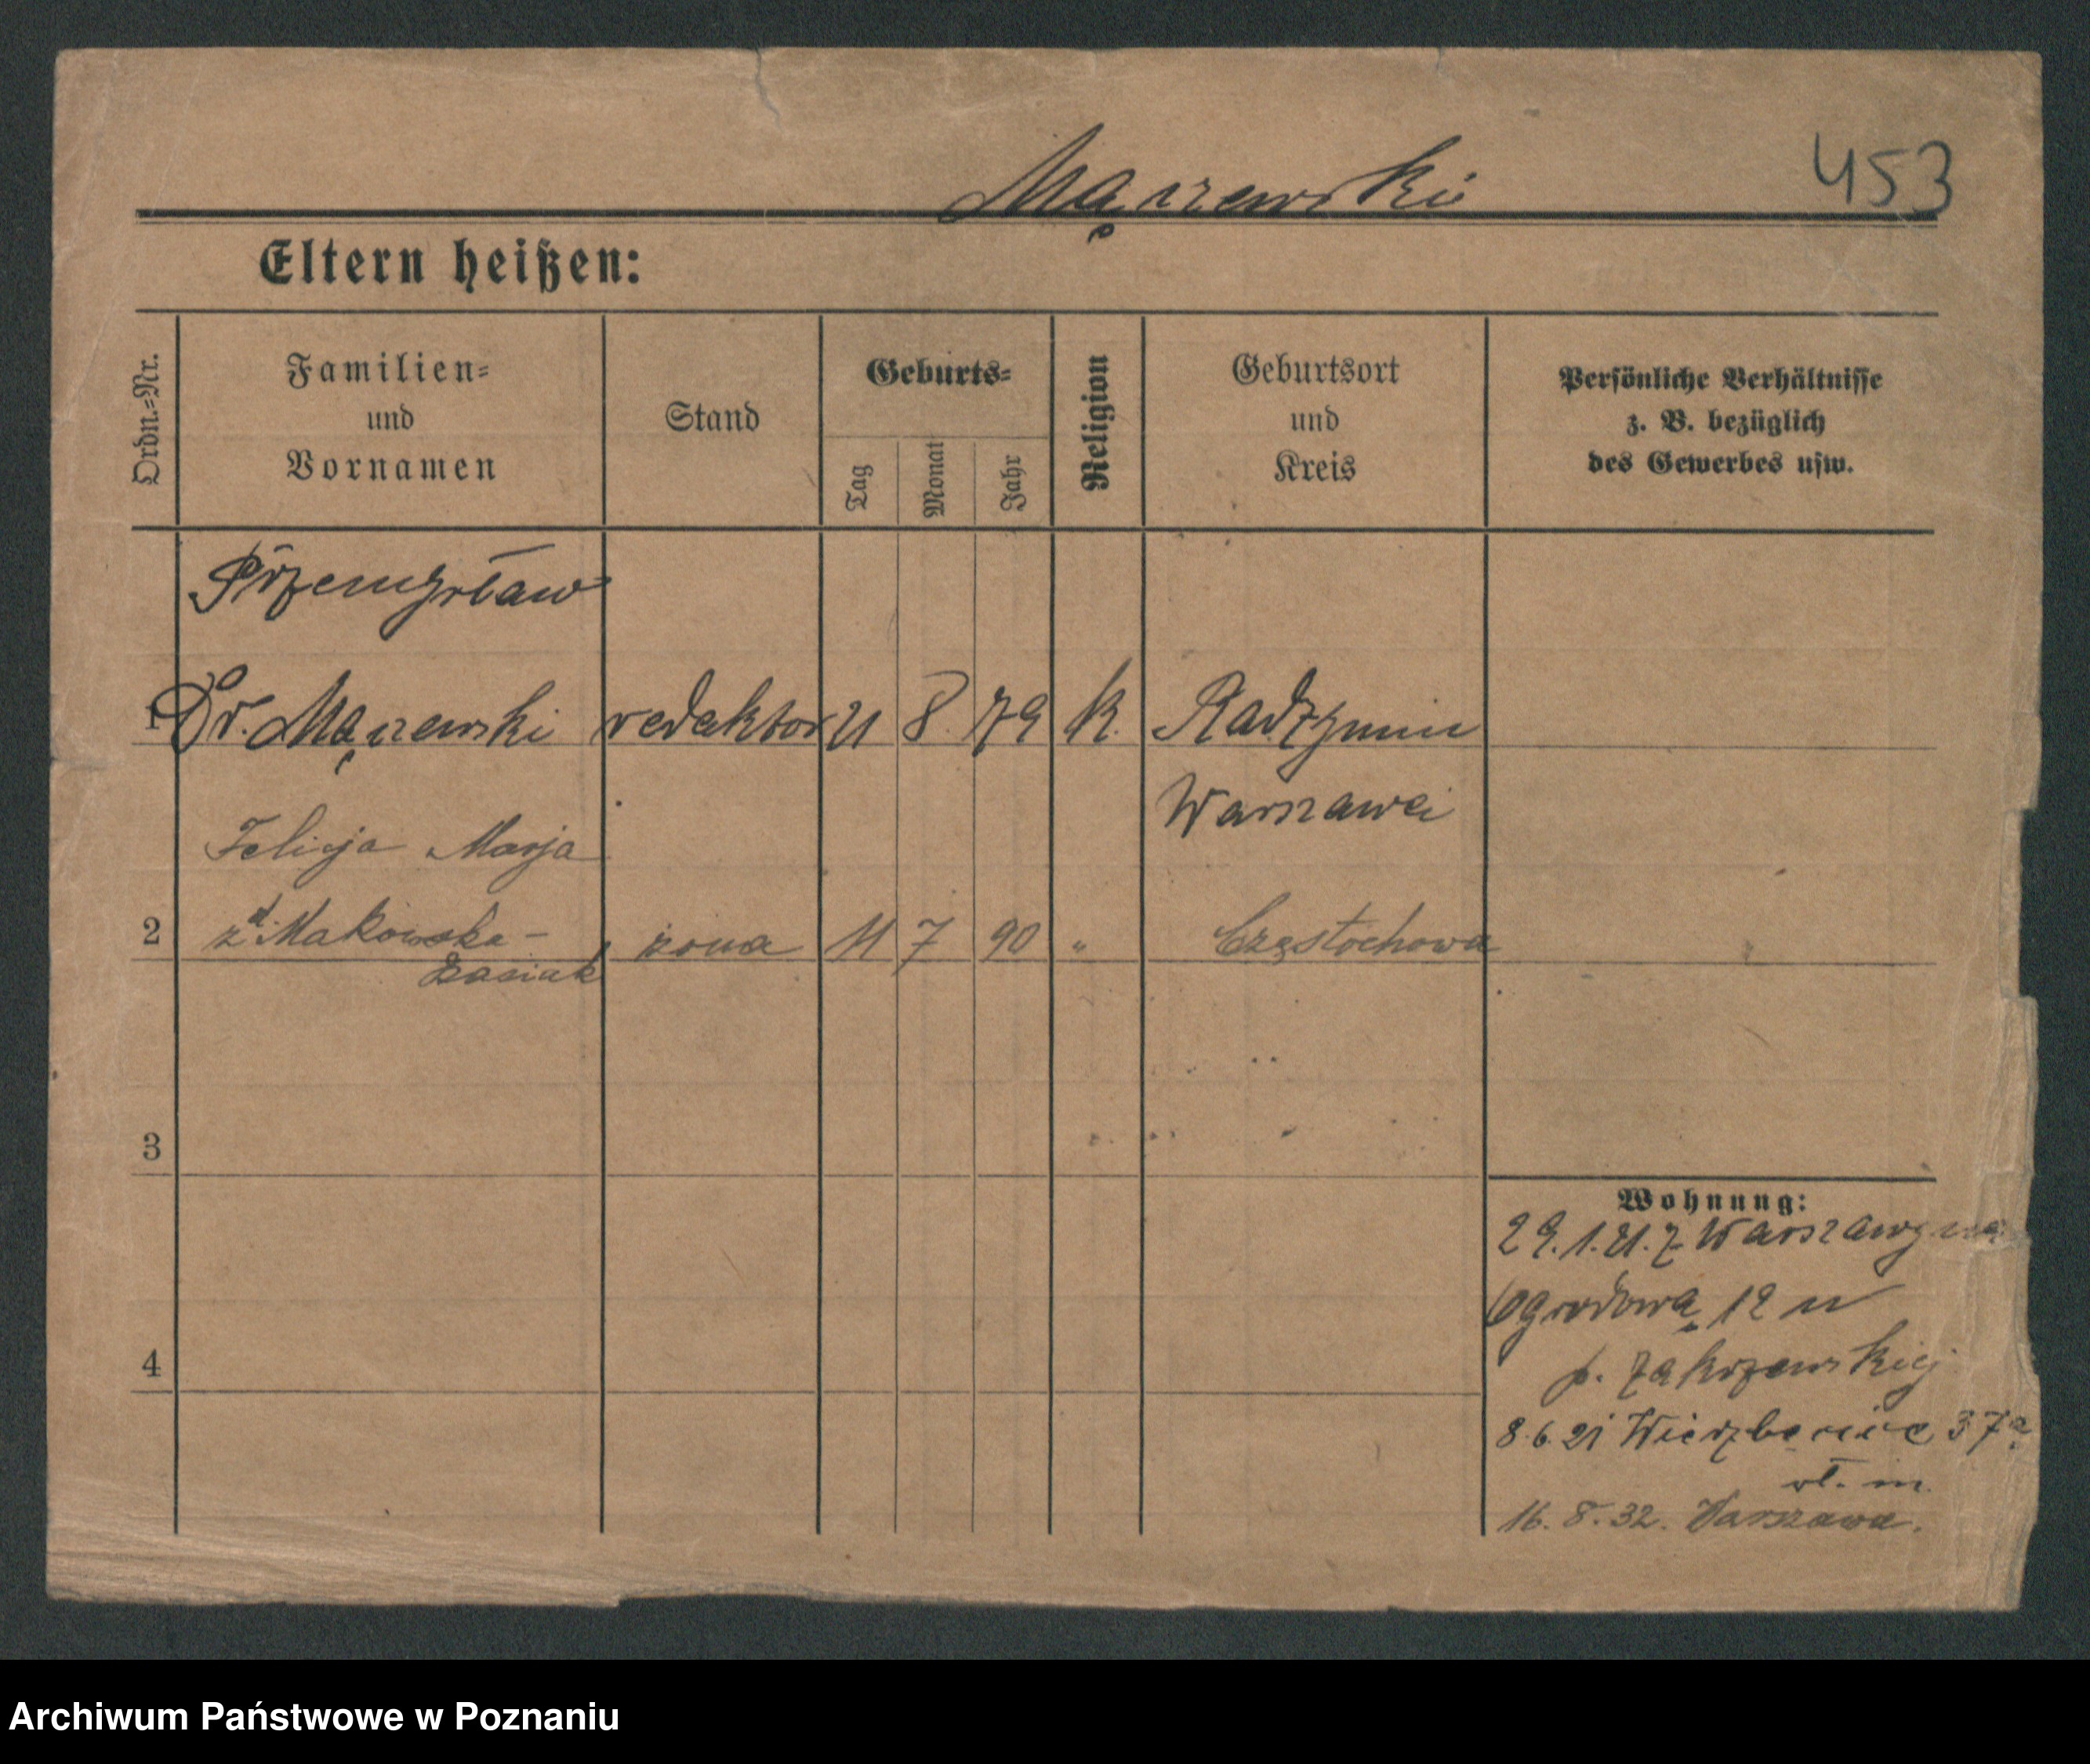 Mączewski
453
Eltern heißen:
Ordn.=Nr.
Familien=
und
Vornamen
Stand
Geburts=
Tag
Monat
Jahr
Religion
Geburtsort
und
Kreis
Persönliche Verhältnisse
z. B. bezüglich
des Gewerbes usw.
Przemysław
1 Dr. Mączewski redaktor 21 8. 79 k. Radzymin
Warszawei
Felicja Marja
2 zd. Makowska - żona 11 7 90 " Częstochowa
Zasiak
3
4
Wohnung:
29.1.21. z Warszawy na
Ogrodową 12 u
p. Zakrzewskiej
8.6.21 Wierzbęcice 37a
wł. m.
16.8.32. Warszawa.
Archiwum Państwowe w Poznaniu